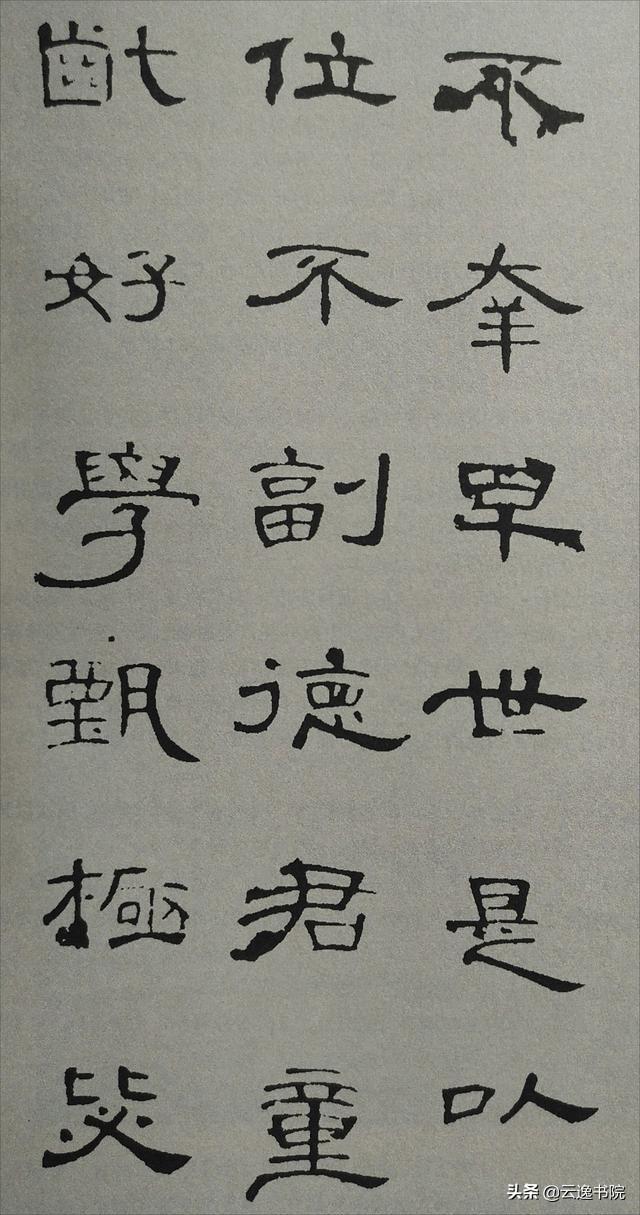 不幸早世是以
位不副德君童
齔好學甄極毖
头条 @云逸书院